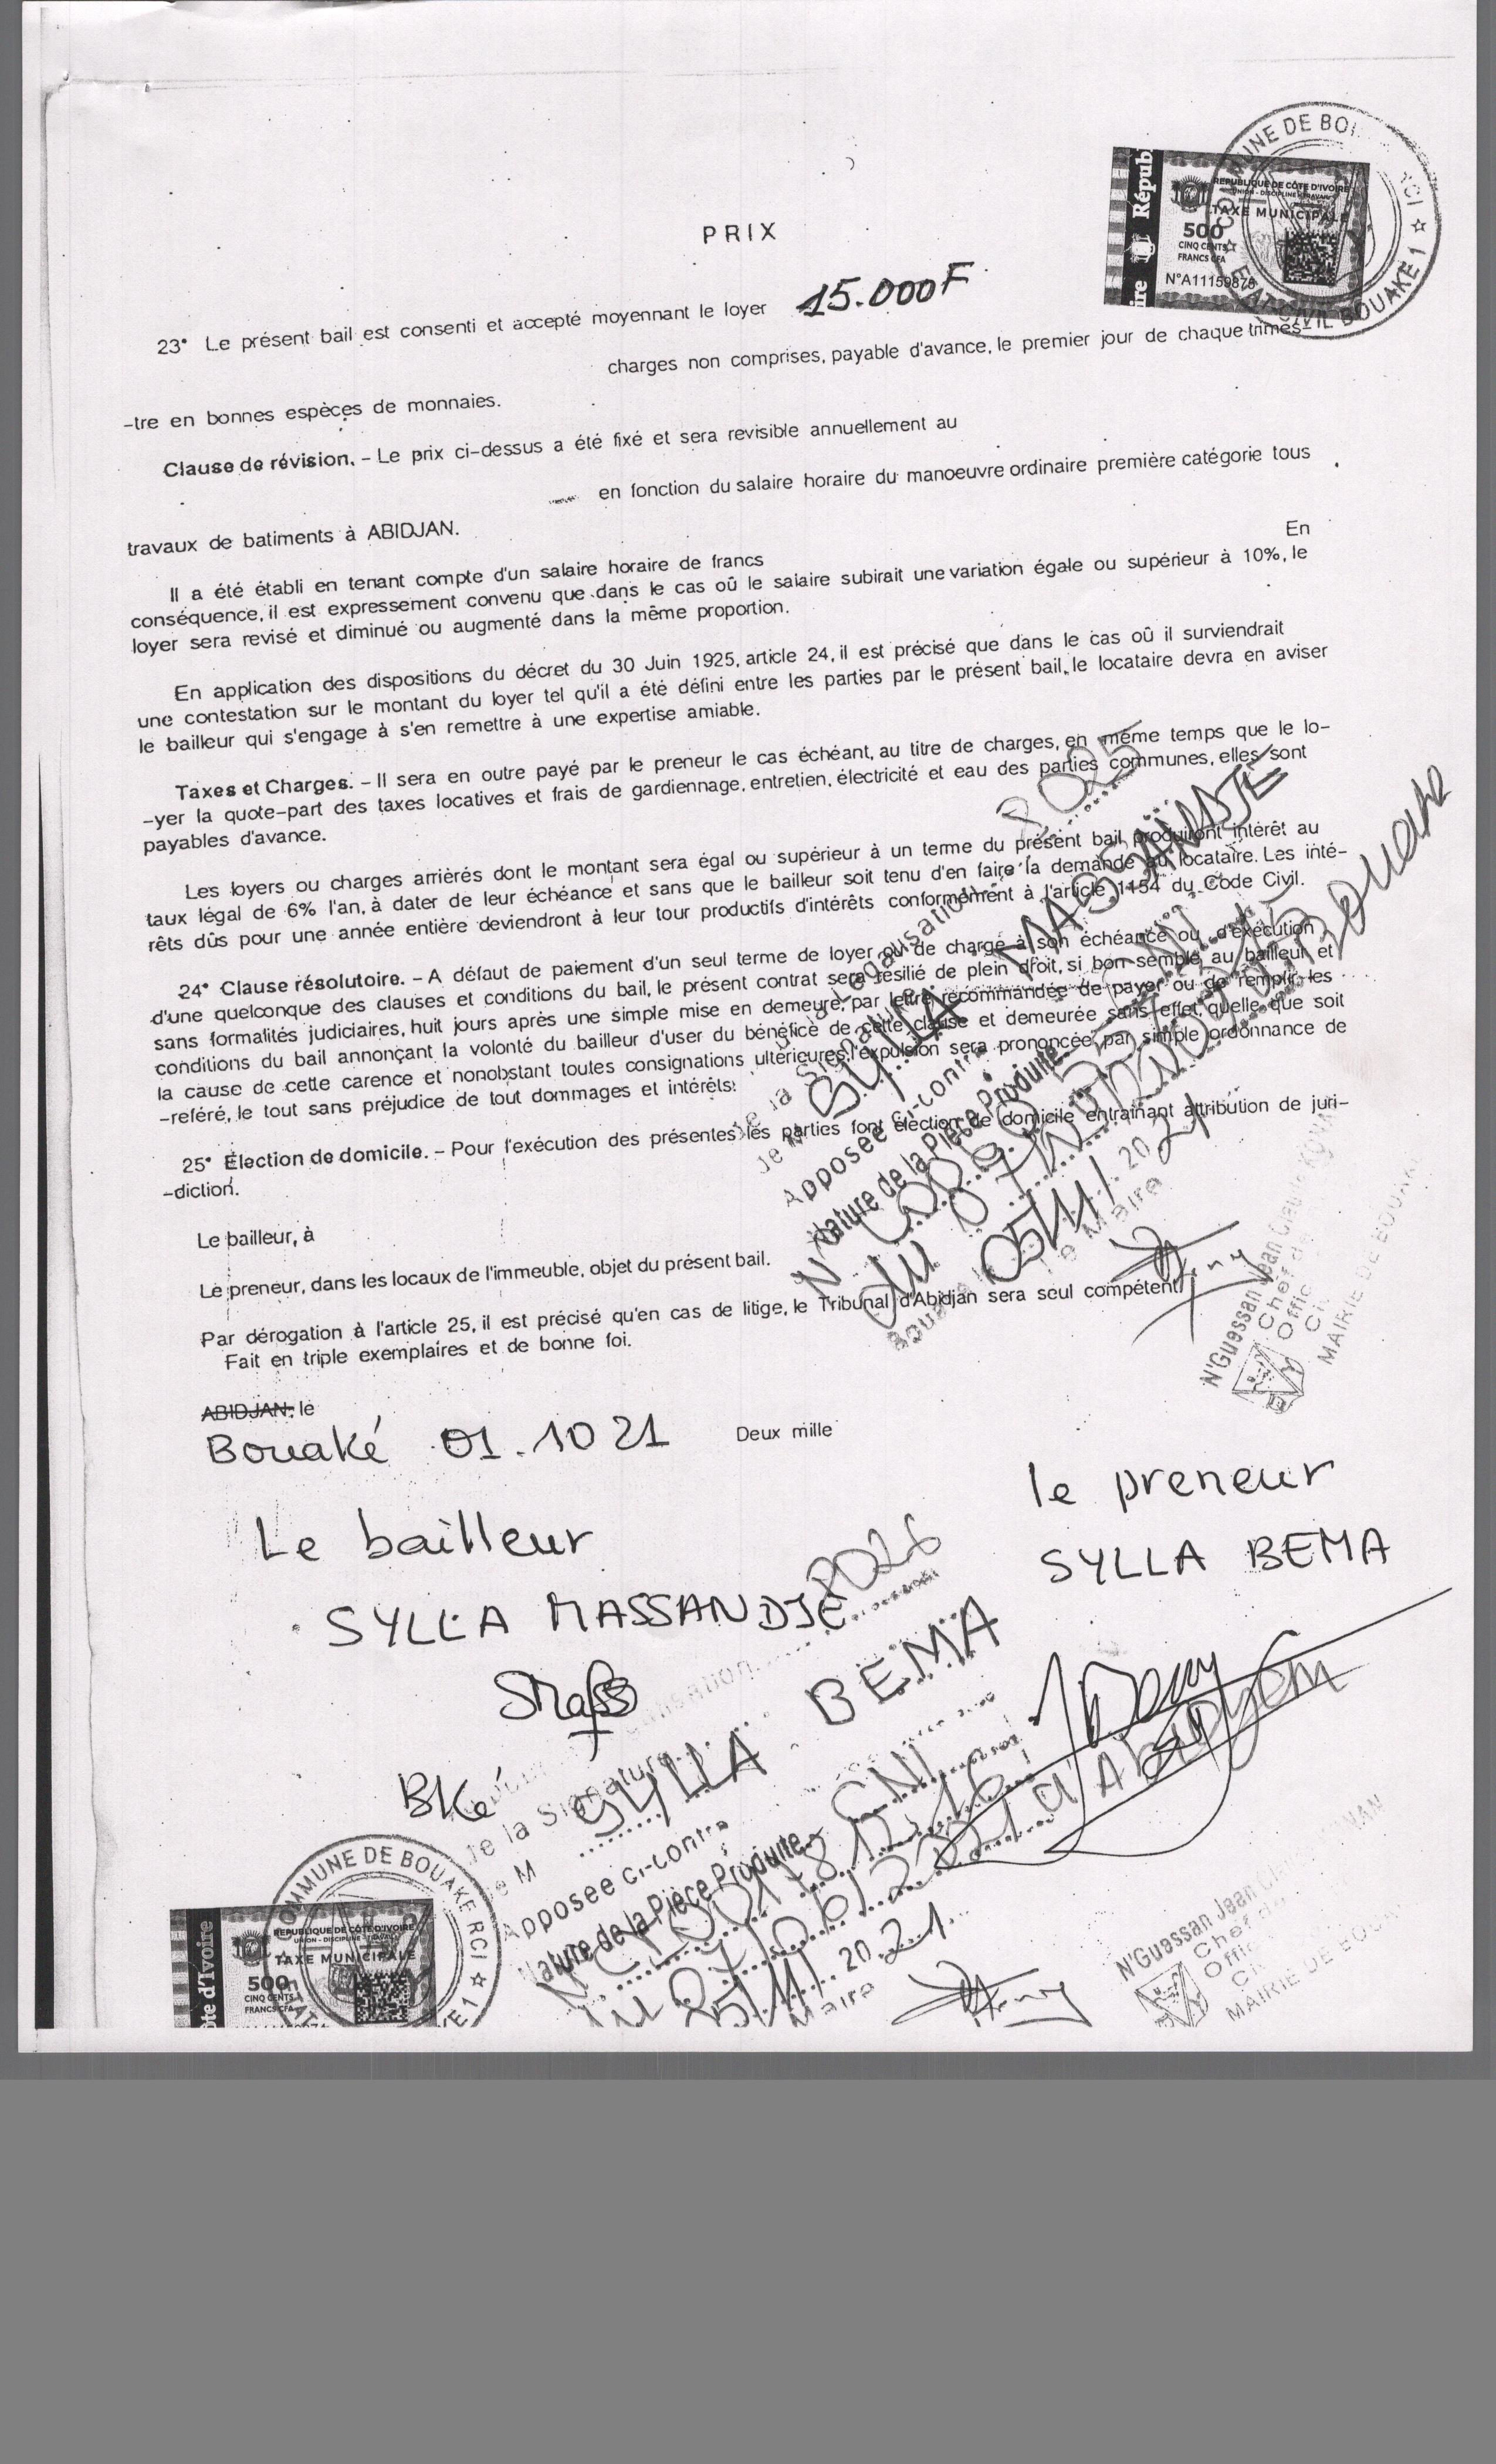 COMMUNE DE BOU
RCI ☆
ETAT CIVIL BOUAKÉ 1
Républ
ire
REPUBLIQUE DE CÔTE D'IVOIRE
UNION - DISCIPLINE - TRAVAIL
TAXE MUNICIPALE
500
CINQ CENTS
FRANCS CFA
N°A11159878
PRIX
23° Le présent bail est consenti et accepté moyennant le loyer 15.000F
charges non comprises, payable d'avance, le premier jour de chaque trimes-
-tre en bonnes espèces de monnaies.
Clause de révision. - Le prix ci-dessus a été fixé et sera revisible annuellement au
en fonction du salaire horaire du manoeuvre ordinaire première catégorie tous
travaux de batiments à ABIDJAN.
Il a été établi en tenant compte d'un salaire horaire de francs En
conséquence, il est expressement convenu que dans le cas oû le salaire subirait une variation égale ou supérieur à 10%, le
loyer sera revisé et diminué ou augmenté dans la même proportion.
En application des dispositions du décret du 30 Juin 1925, article 24, il est précisé que dans le cas oû il surviendrait
une contestation sur le montant du loyer tel qu'il a été défini entre les parties par le présent bail, le locataire devra en aviser
le bailleur qui s'engage à s'en remettre à une expertise amiable.
Taxes et Charges. - Il sera en outre payé par le preneur le cas échéant, au titre de charges, en même temps que le lo-
-yer la quote-part des taxes locatives et frais de gardiennage, entretien, électricité et eau des parties communes, elles sont
payables d'avance.
Les loyers ou charges arrièrés dont le montant sera égal ou supérieur à un terme du présent bail produiront intérêt au
taux légal de 6% l'an, à dater de leur échéance et sans que le bailleur soit tenu d'en faire la demande au locataire. Les inté-
rêts dûs pour une année entière deviendront à leur tour productifs d'intérêts conformément à l'article 1154 du Code Civil.
24° Clause résolutoire. - A défaut de paiement d'un seul terme de loyer ou de charge à son échéance ou d'exécution
d'une quelconque des clauses et conditions du bail, le présent contrat sera résilié de plein droit, si bon semble au bailleur et
sans formalités judiciaires, huit jours après une simple mise en demeure, par lettre recommandée de payer ou de remplir les
conditions du bail annonçant la volonté du bailleur d'user du bénéfice de cette clause et demeurée sans effet, quelle que soit
la cause de cette carence et nonobstant toutes consignations ultérieures, l'expulsion sera prononcée par simple ordonnance de
-referé, le tout sans préjudice de tout dommages et intérêts.
25° Élection de domicile. - Pour l'exécution des présentes les parties font élection de domicile entrainant attribution de juri-
-diction.
Le bailleur, à
Le preneur, dans les locaux de l'immeuble, objet du présent bail.
Par dérogation à l'article 25, il est précisé qu'en cas de litige, le Tribunal d'Abidjan sera seul compétent
Fait en triple exemplaires et de bonne foi.
2025
de la Signature
SYLLA MASSANDJE
Apposée ci-contre
Nature de la Pièce Produite
05/11/ 2021
Le Maire
N'Guessan Jean Claude KOUA
Chef de
Offic
MAIRIE DE BOUAK
ABIDJAN, le
Bouaké 01.10 21 Deux mille
Le bailleur
SYLLA MASSANDJE
le preneur
SYLLA BEMA
BKé
2026
de la Signature
M SYLLA BEMA
Apposée ci-contre
CNI
Nature de la Pièce Produite
à Abidjan
05/11/ 2021
Maire
N'Guessan Jean
Chef d
Offic
MAIRIE DE BOUA
COMMUNE DE BOUAKE RCI ☆
ôte d'Ivoire
REPUBLIQUE DE CÔTE D'IVOIRE
UNION - DISCIPLINE - TRAVAIL
TAXE MUNICIPALE
500
CINQ CENTS
FRANCS CFA